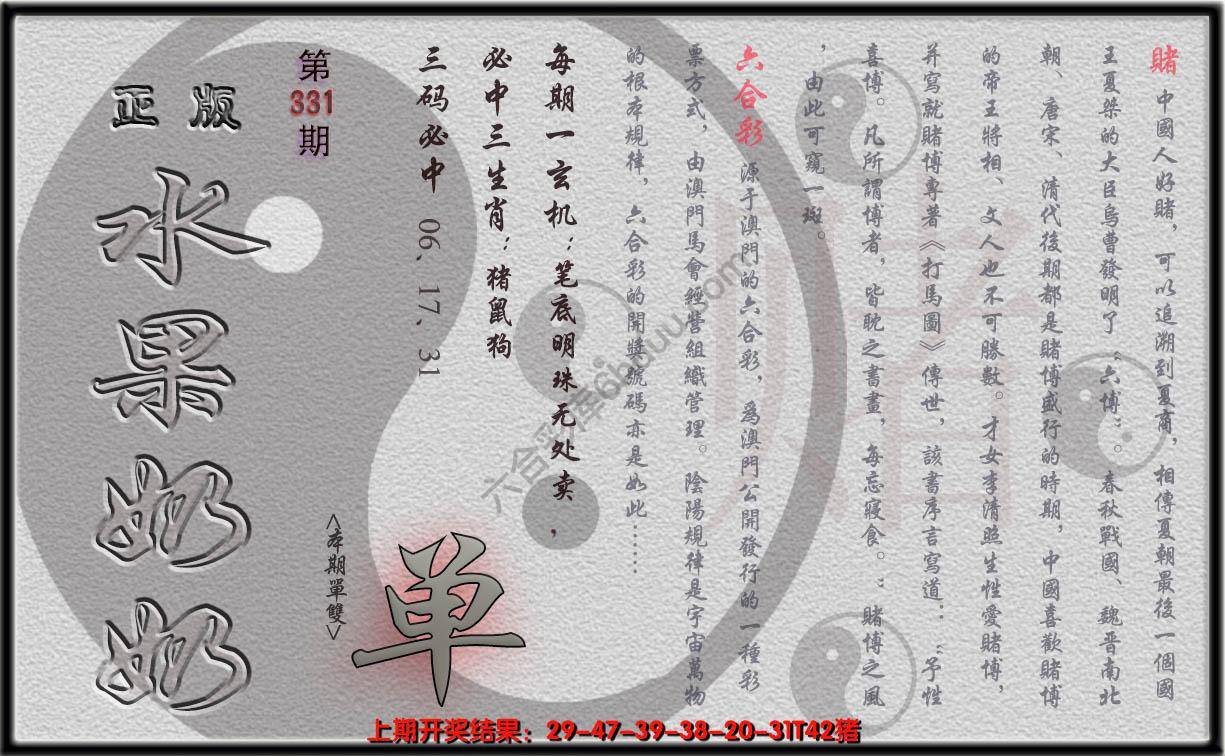 賭 中國人好賭，可以追溯到夏商，相傳夏朝最後一個國
王夏桀的大臣烏曹發明了“六博”。春秋戰國、魏晋南北
朝、唐宋、清代後期都是賭博盛行的時期，中國喜歡賭博
的帝王將相、文人也不可勝數。才女李清照生性愛賭博，
并寫就賭博專著《打馬圖》傳世，該書序言寫道：“予性
喜博。凡所謂博者，皆耽之書畫，每忘寢食。”賭博之風
，由此可窺一斑。
六合彩 源于澳門的六合彩，爲澳門公開發行的一種彩
票方式，由澳門馬會經營組織管理。陰陽規律是宇宙萬物
的根本規律，六合彩的開獎號碼亦是如此……
每期一玄机：笔底明珠无处卖，
必中三生肖：猪鼠狗
三码必中 06、17、31
第
331
期
正版
水果奶奶
<本期單雙>
单
上期开奖结果：29-47-39-38-20-31T42猪